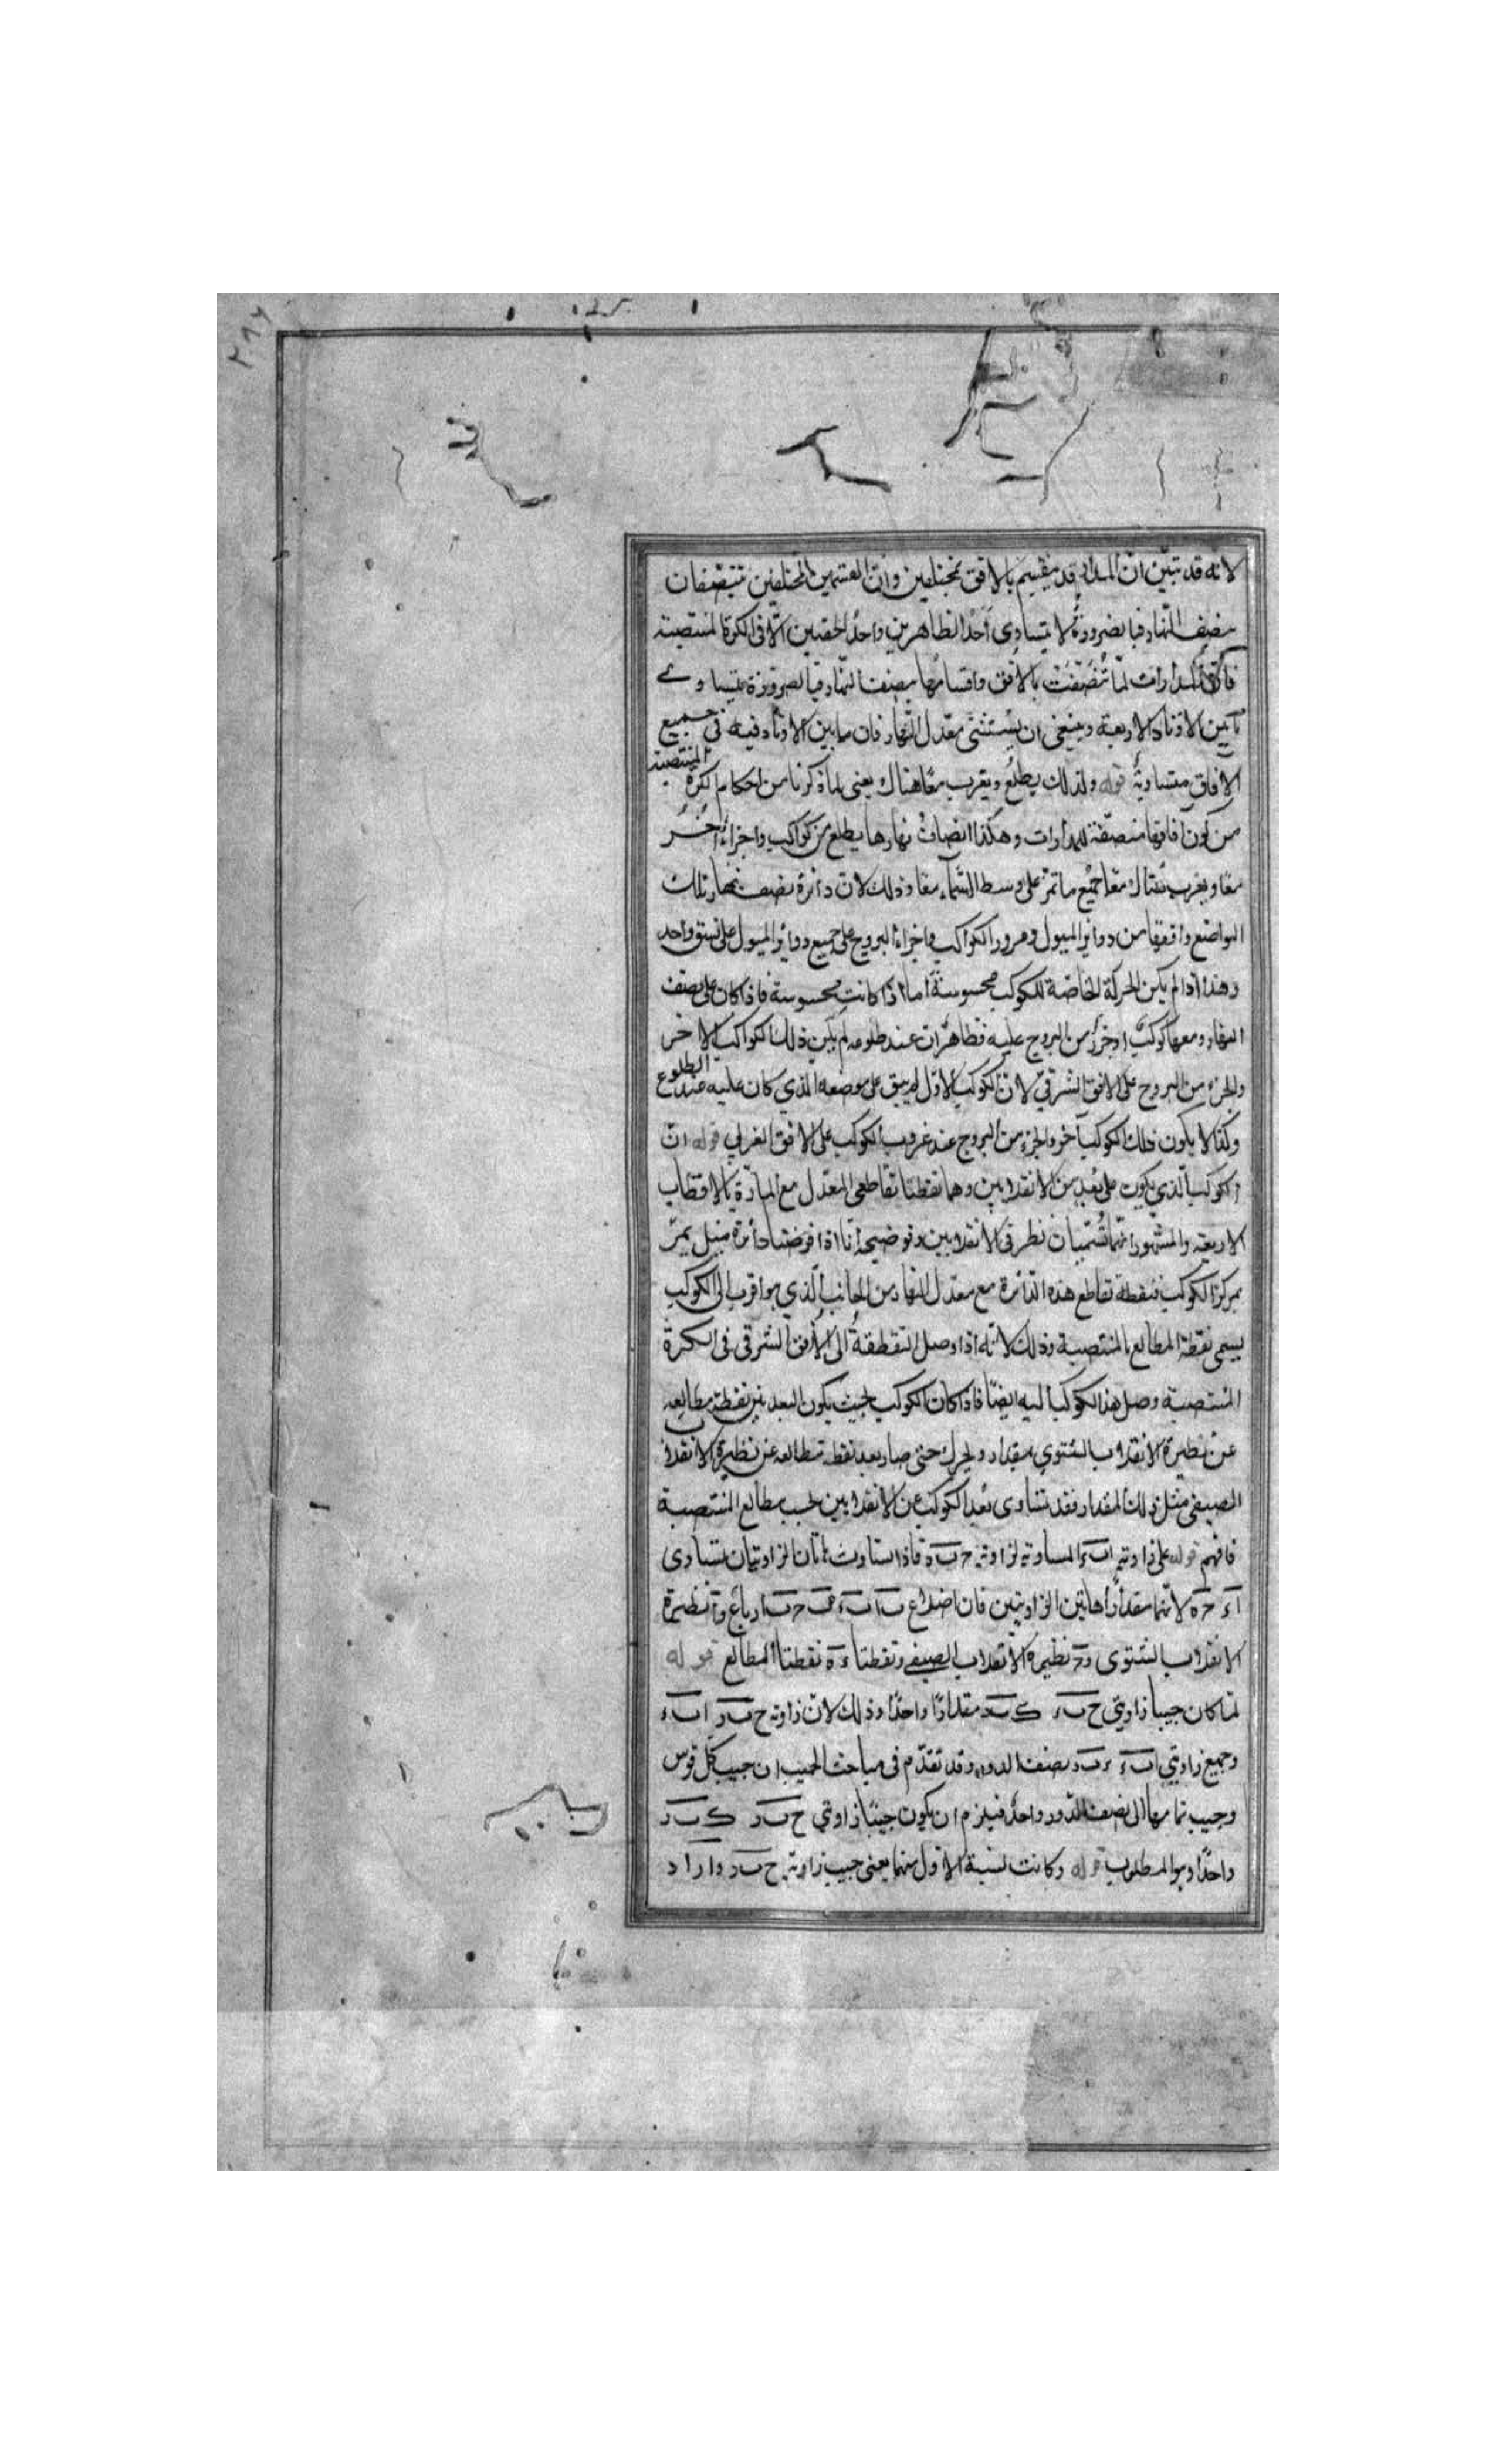 لانه قد تبيّن انّ المدار قد ينقسم بالافق بمختلفين وانّ القسمين المختلفين ينتصفان
بنصف النّهار فبالضرورة لا يتساوى احد الظاهرين واحد الخفيين الّا فى الكرة المنتصبة
فانّ المدارات لمّا تنصّفت بالافق واقسامها بنصف النهار فبالضرورة يتساوى
ما بين الاوتاد الاربعة وينبغى ان يستثنى معدل النّهار فان ما بين الاوتاد فيه فى جميع
الافاق متساوية قوله ولذلك يطلع ويغرب معًا هناك يعنى لما ذكرنا من احكام الكرة المنتصبة
من كون آفاقها منصّفة للمدارات وهكذا انصاف نهارها يطلع من كواكب واجزاء أُخَر
معًا ويغرب هناك معًا جميع ما تمرّ على وسط السّمآء معًا وذلك لانّ دائرة نصف نهار تلك
المواضع وافقها من دوائر الميول ومرور الكواكب واجزاء البروج على جميع دوائر الميول على نسق واحد
وهذا اذا لم يكن الحركة الخاصّة للكوكب محسوسةً اما اذا كانت محسوسة فاذا كان على نصف
النهار ومعه كوكبٌ او جزءٌ من البروج عليه فظاهرٌ ان عند طلوعه لم يكن ذلك الكواكب الاخر
والجزء من البروج على الافق الشرقىّ لانّ الكوكب الاوّل لم يبق على موضعه الذي كان عليه عند الطلوع
وكذا لا يكون ذلك الكوكب آخر والجزء من البروج عند غروب الكوكب على الافق الغربي قوله انّ
الكوكب الّذي يكون على بُعد من الانقلابين وهما نقطتا تقاطعى المعدّل مع المارّة بالاقطاب
الاربعة والمشهور انّهما تُسمّيان نظيرتى الانقلابين وتوضيحه أنّا اذا فرضنا دائرة ميل يمرّ
بمركز الكوكب فنقطة تقاطع هذه الدّائرة مع معدّل النهار من الجانب الّذي هو اقرب الى الكوكب
يسمى نقطة المطالع بالمنتصبة وذلك لانّه اذا وصل النقطة الى الأفق الشرقى فى الكرة
المنتصبة وصل هذا الكوكب اليه ايضًا فاذا كان الكوكب بحيث يكون البعد بين نقطة مطالعه
عن نظيرة الانقلاب الشتوي بمقدار وتحرك حتى صار بعد نقطة مطالعه عن نظيرة الانقلاب
الصيفى مثل ذلك المقدار فقد تساوى بُعد الكوكب عن الانقلابين بحسب مطالع المنتصبة
فافهم قوله على زاوية ا ب ء المساوية لزاوية ح ب ه فاذا تساوت هاتان الزاويتان يتساوى
ا ء ح ه لانّهما مقدارا هاتين الزاويتين فان اضلاع ب ا ب ء ب ح ب ه ارباع و ا نظيرة
الانقلاب الشتوى و ح نظيرة الانقلاب الصيفى ونقطتا ء ه نقطتا المطالع قوله
لمّا كان جيبا زاويتي ح ب ء ك ب د مقدارًا واحدًا وذلك لانّ زاوية ح ب د ا ب ء
وجميع زاويتي ا ب ء ء ب د نصف الدور وقد تقدّم فى مباحث الجيب ان جيب كلّ قوس
وجيب تمامها الى نصف الدّور واحدٌ فيلزم ان يكون جيبا زاويتي ح ب د ك ب د
واحدًا وهو المطلوب قوله وكانت نسبة الاوّل منهما يعنى جيب زاوية ح ب د